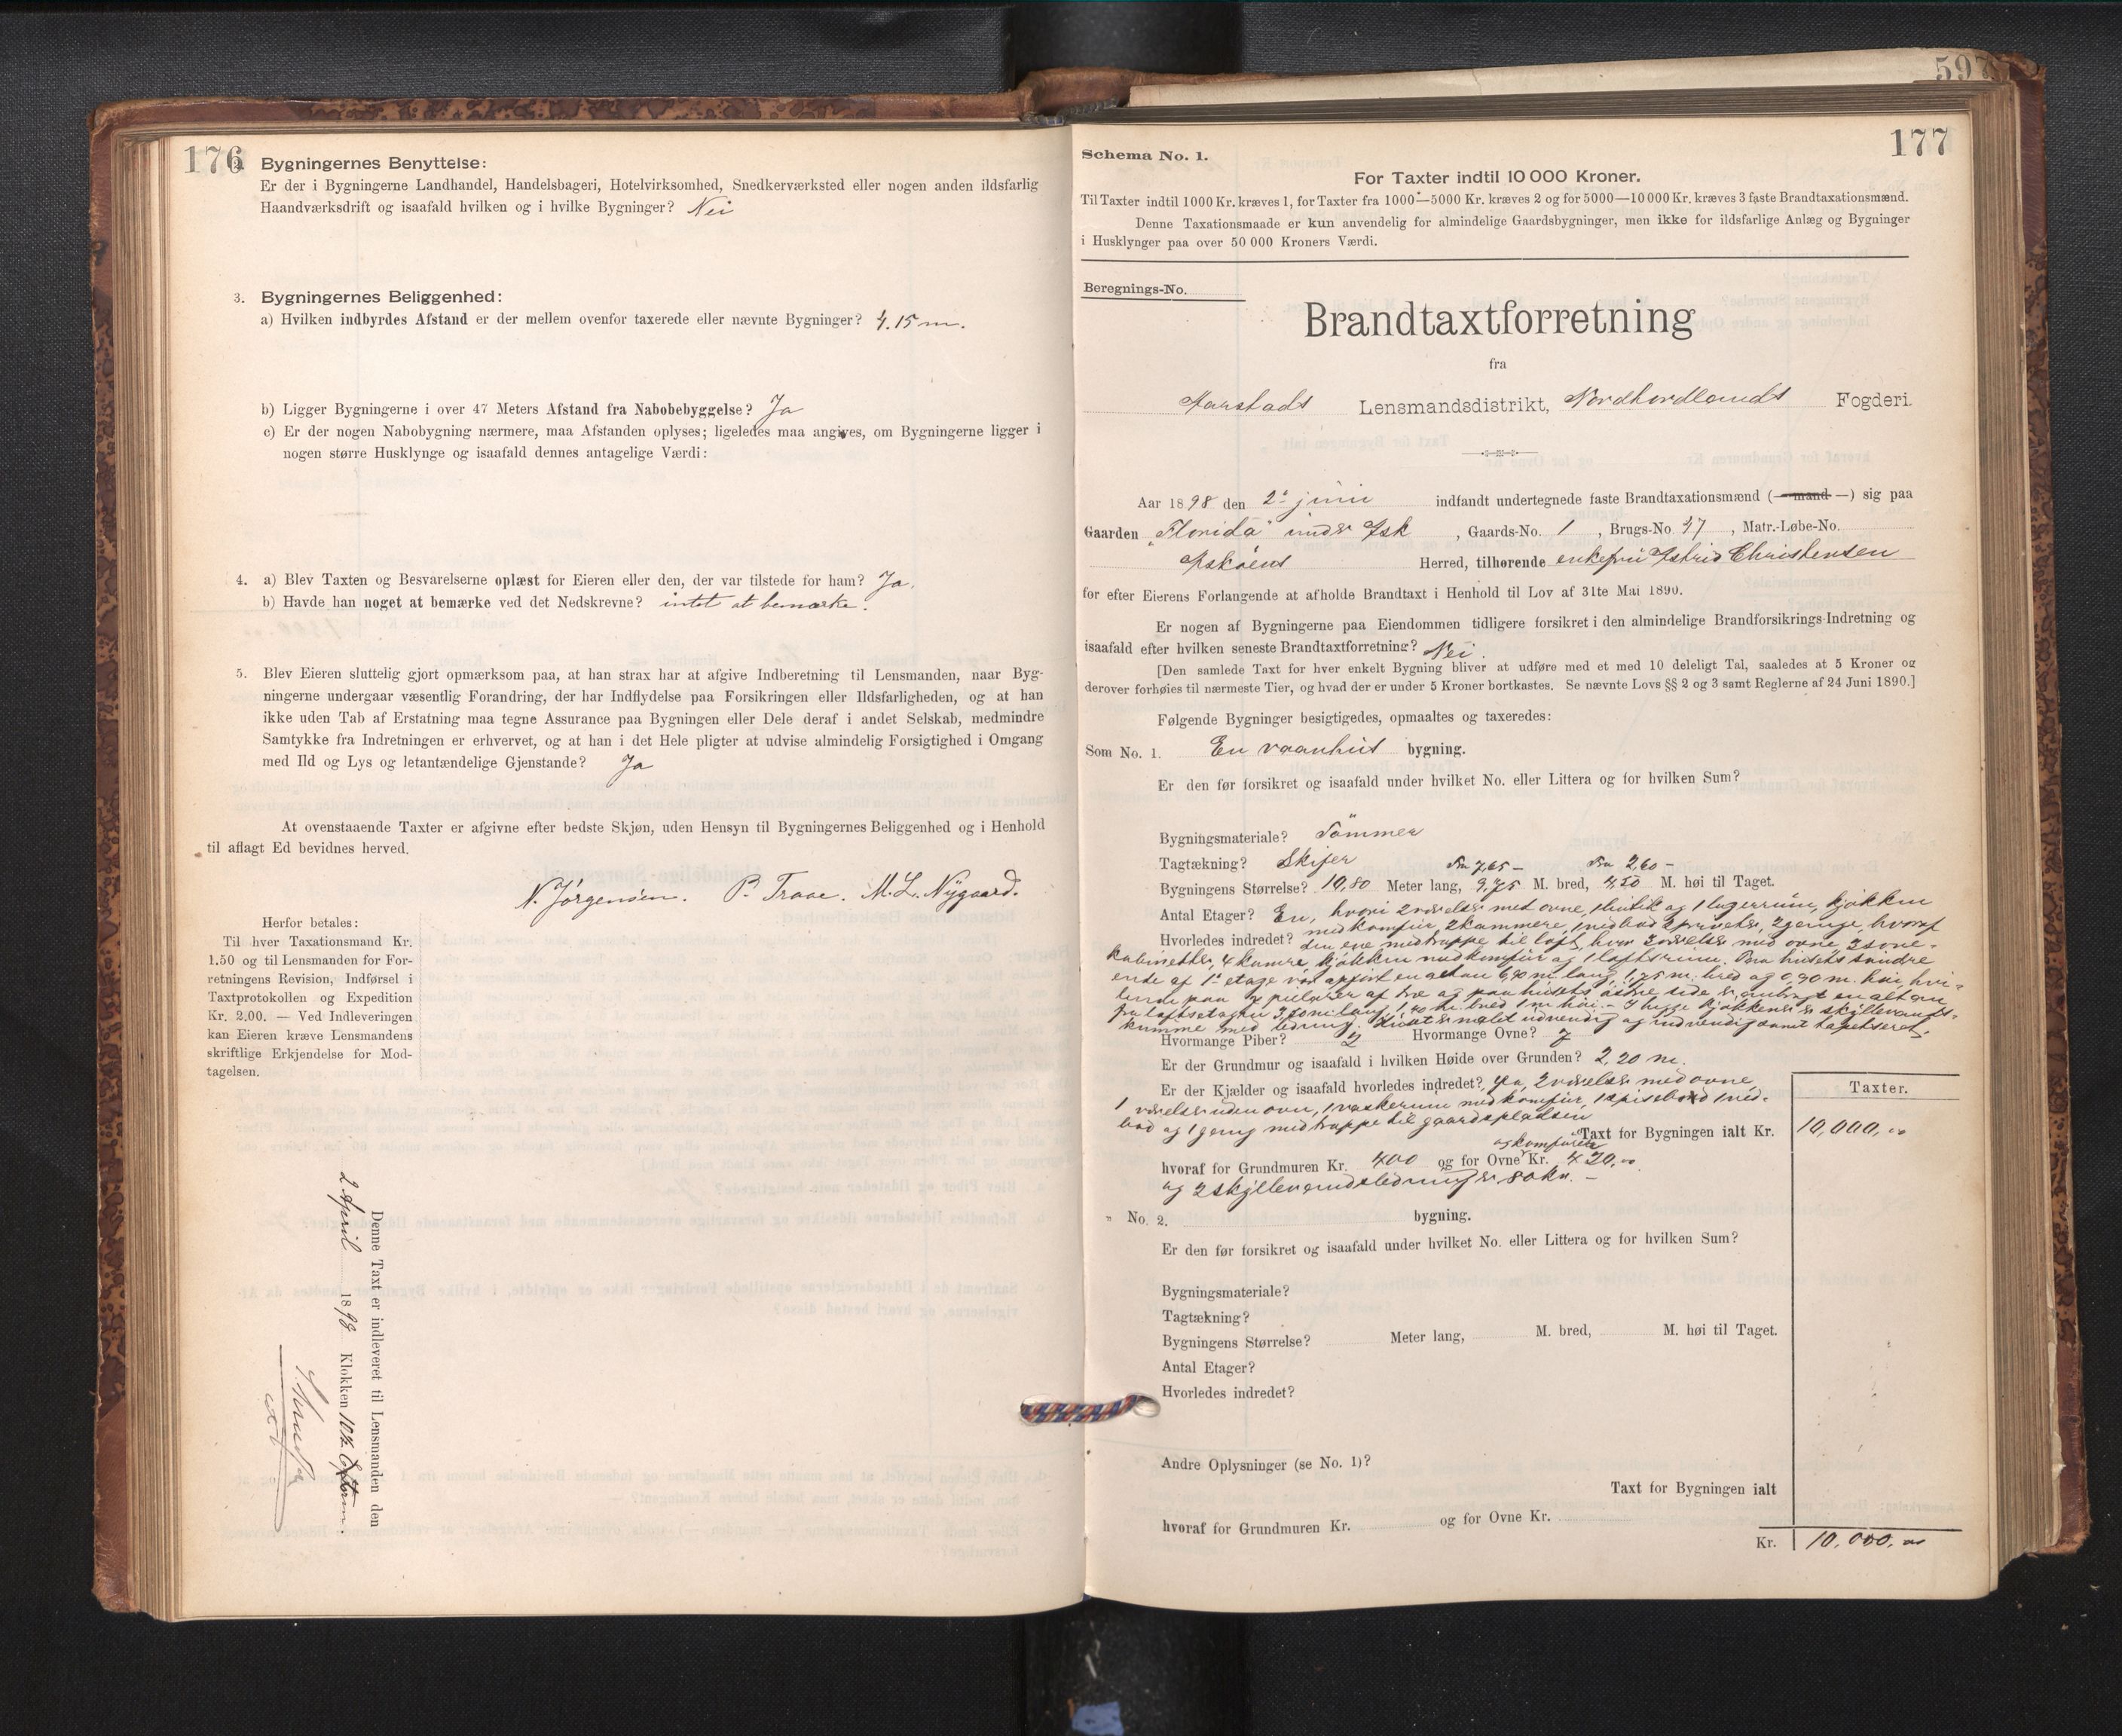 176
2. Bygningernes Benyttelse:
Er der i Bygningerne Landhandel, Handelsbageri, Hotelvirksomhed, Snedkerværksted eller nogen anden ildsfarlig
Haandværksdrift og isaafald hvilken og i hvilke Bygninger? Nei
3. Bygningernes Beliggenhed:
a) Hvilken indbyrdes Afstand er der mellem ovenfor taxerede eller nævnte Bygninger? 4.15 m.
b) Ligger Bygningerne i over 47 Meters Afstand fra Nabobebyggelse? Ja
c) Er der nogen Nabobygning nærmere, maa Afstanden oplyses; ligeledes maa angives, om Bygningerne ligger i
nogen større Husklynge og isaafald dennes antagelige Værdi:
4. a) Blev Taxten og Besvarelserne oplæst for Eieren eller den, der var tilstede for ham? Ja.
b) Havde han noget at bemærke ved det Nedskrevne? intet at bemærke.
5. Blev Eieren sluttelig gjort opmærksom paa, at han strax har at afgive Indberetning til Lensmanden, naar Byg-
ningerne undergaar væsentlig Forandring, der har Indflydelse paa Forsikringen eller Ildsfarligheden, og at han
ikke uden Tab af Erstatning maa tegne Assurance paa Bygningen eller Dele deraf i andet Selskab, medmindre
Samtykke fra Indretningen er erhvervet, og at han i det Hele pligter at udvise almindelig Forsigtighed i Omgang
med Ild og Lys og letantændelige Gjenstande? Ja
At ovenstaaende Taxter er afgivne efter bedste Skjøn, uden Hensyn til Bygningernes Beliggenhed og i Henhold
til aflagt Ed bevidnes herved.
N. Jörgensen. P. Traae. M. L. Nÿgaard.
Herfor betales:
Til hver Taxationsmand Kr.
1.50 og til Lensmanden for For-
retningens Revision, Indførsel i
Taxtprotokollen og Expedition
Kr. 2.00. — Ved Indleveringen
kan Eieren kræve Lensmandens
skriftlige Erkjendelse for Mod-
tagelsen.
Denne Taxt er indleveret til Lensmanden den
2 April 1898 Klokken 10½ Eftrm
597
177
Schema No. 1.
For Taxter indtil 10 000 Kroner.
Til Taxter indtil 1000 Kr. kræves 1, for Taxter fra 1000—5000 Kr. kræves 2 og for 5000—10 000 Kr. kræves 3 faste Brandtaxationsmænd.
Denne Taxationsmaade er kun anvendelig for almindelige Gaardsbygninger, men ikke for ildsfarlige Anlæg og Bygninger
i Husklynger paa over 50 000 Kroners Værdi.
Beregnings-No.
Brandtaxtforretning
fra
Aarstads Lensmandsdistrikt, Nordhordlands Fogderi.
Aar 1898 den 2. juni indfandt undertegnede faste Brandtaxationsmænd (— mand —) sig paa
Gaarden „Florida" under Ask, Gaards-No. 1, Brugs-No. 47, Matr.-Løbe-No.
Askøens Herred, tilhørende enkefru Astrid Christensen
for efter Eierens Forlangende at afholde Brandtaxt i Henhold til Lov af 31te Mai 1890.
Er nogen af Bygningerne paa Eiendommen tidligere forsikret i den almindelige Brandforsikrings-Indretning og
isaafald efter hvilken seneste Brandtaxtforretning? Nei.
[Den samlede Taxt for hver enkelt Bygning bliver at udføre med et med 10 deleligt Tal, saaledes at 5 Kroner og
derover forhøies til nærmeste Tier, og hvad der er under 5 Kroner bortkastes. Se nævnte Lovs §§ 2 og 3 samt Reglerne af 24 Juni 1890.]
Følgende Bygninger besigtigedes, opmaaltes og taxeredes:
Som No. 1. En vaanhus bygning.
Er den før forsikret og isaafald under hvilket No. eller Littera og for hvilken Sum?
Bygningsmateriale? Tömmer
Tagtækning? Skifer fra 7,65 – fra 2,60 –
Bygningens Størrelse? 10,80 Meter lang, 9,75 M. bred, 4,50 M. høi til Taget.
Antal Etager? En, hvori 2 værelser med ovne, 1 butik og 1 lagerrum, kjøkken
Hvorledes indredet? med komfur, 2 kammere, 1 spisebod 2 priveter, 2 gange, hvoraf
den ene med trappe til loft, hvor 3 værelser med ovne, 2 sove-
kabinetter, 4 kamre, kjøkken med komfur og 1 loftsrum. Paa husets søndre
ende af 1ste etage er opført en altan 6,90 m. lang, 1,75 m. bred og 0,90 m. høi, hvi-
lende paa 4 pielarer af træ og paa husets østre side er anbragt en altan
fra loftsetagen 3,50 m. lang, 1,40 m. bred 1 m høi. - I begge kjøkkener er skyllevands-
kumme med ledning. Huset er malet udvendig og indvendig samt tapetseret.
Hvormange Piber? 2 Hvormange Ovne? 7
Er der Grundmur og isaafald i hvilken Høide over Grunden? 2,20 m.
Er der Kjælder og isaafald hvorledes indredet? Ja, 2 værelser med ovne,
1 værelse uden ovn, 1 vaskerum med komfur, 1 spisebod 1 ved-
bod og 1 gang med trappe til gaardspladsen
Taxter.
Taxt for Bygningen ialt Kr. 10,000,00
og komfurer
hvoraf for Grundmuren Kr. 400 og for Ovne Kr. 420,00
og 2 skyllevandsledninger 80 kr. –
" No. 2. bygning.
Er den før forsikret og isaafald under hvilket No. eller Littera og for hvilken Sum?
Bygningsmateriale?
Tagtækning?
Bygningens Størrelse? Meter lang, M. bred, M. høi til Taget.
Antal Etager?
Hvorledes indredet?
Andre Oplysninger (se No. 1)?
Taxt for Bygningen ialt
hvoraf for Grundmuren Kr. og for Ovne Kr.
Kr. 10,000,00